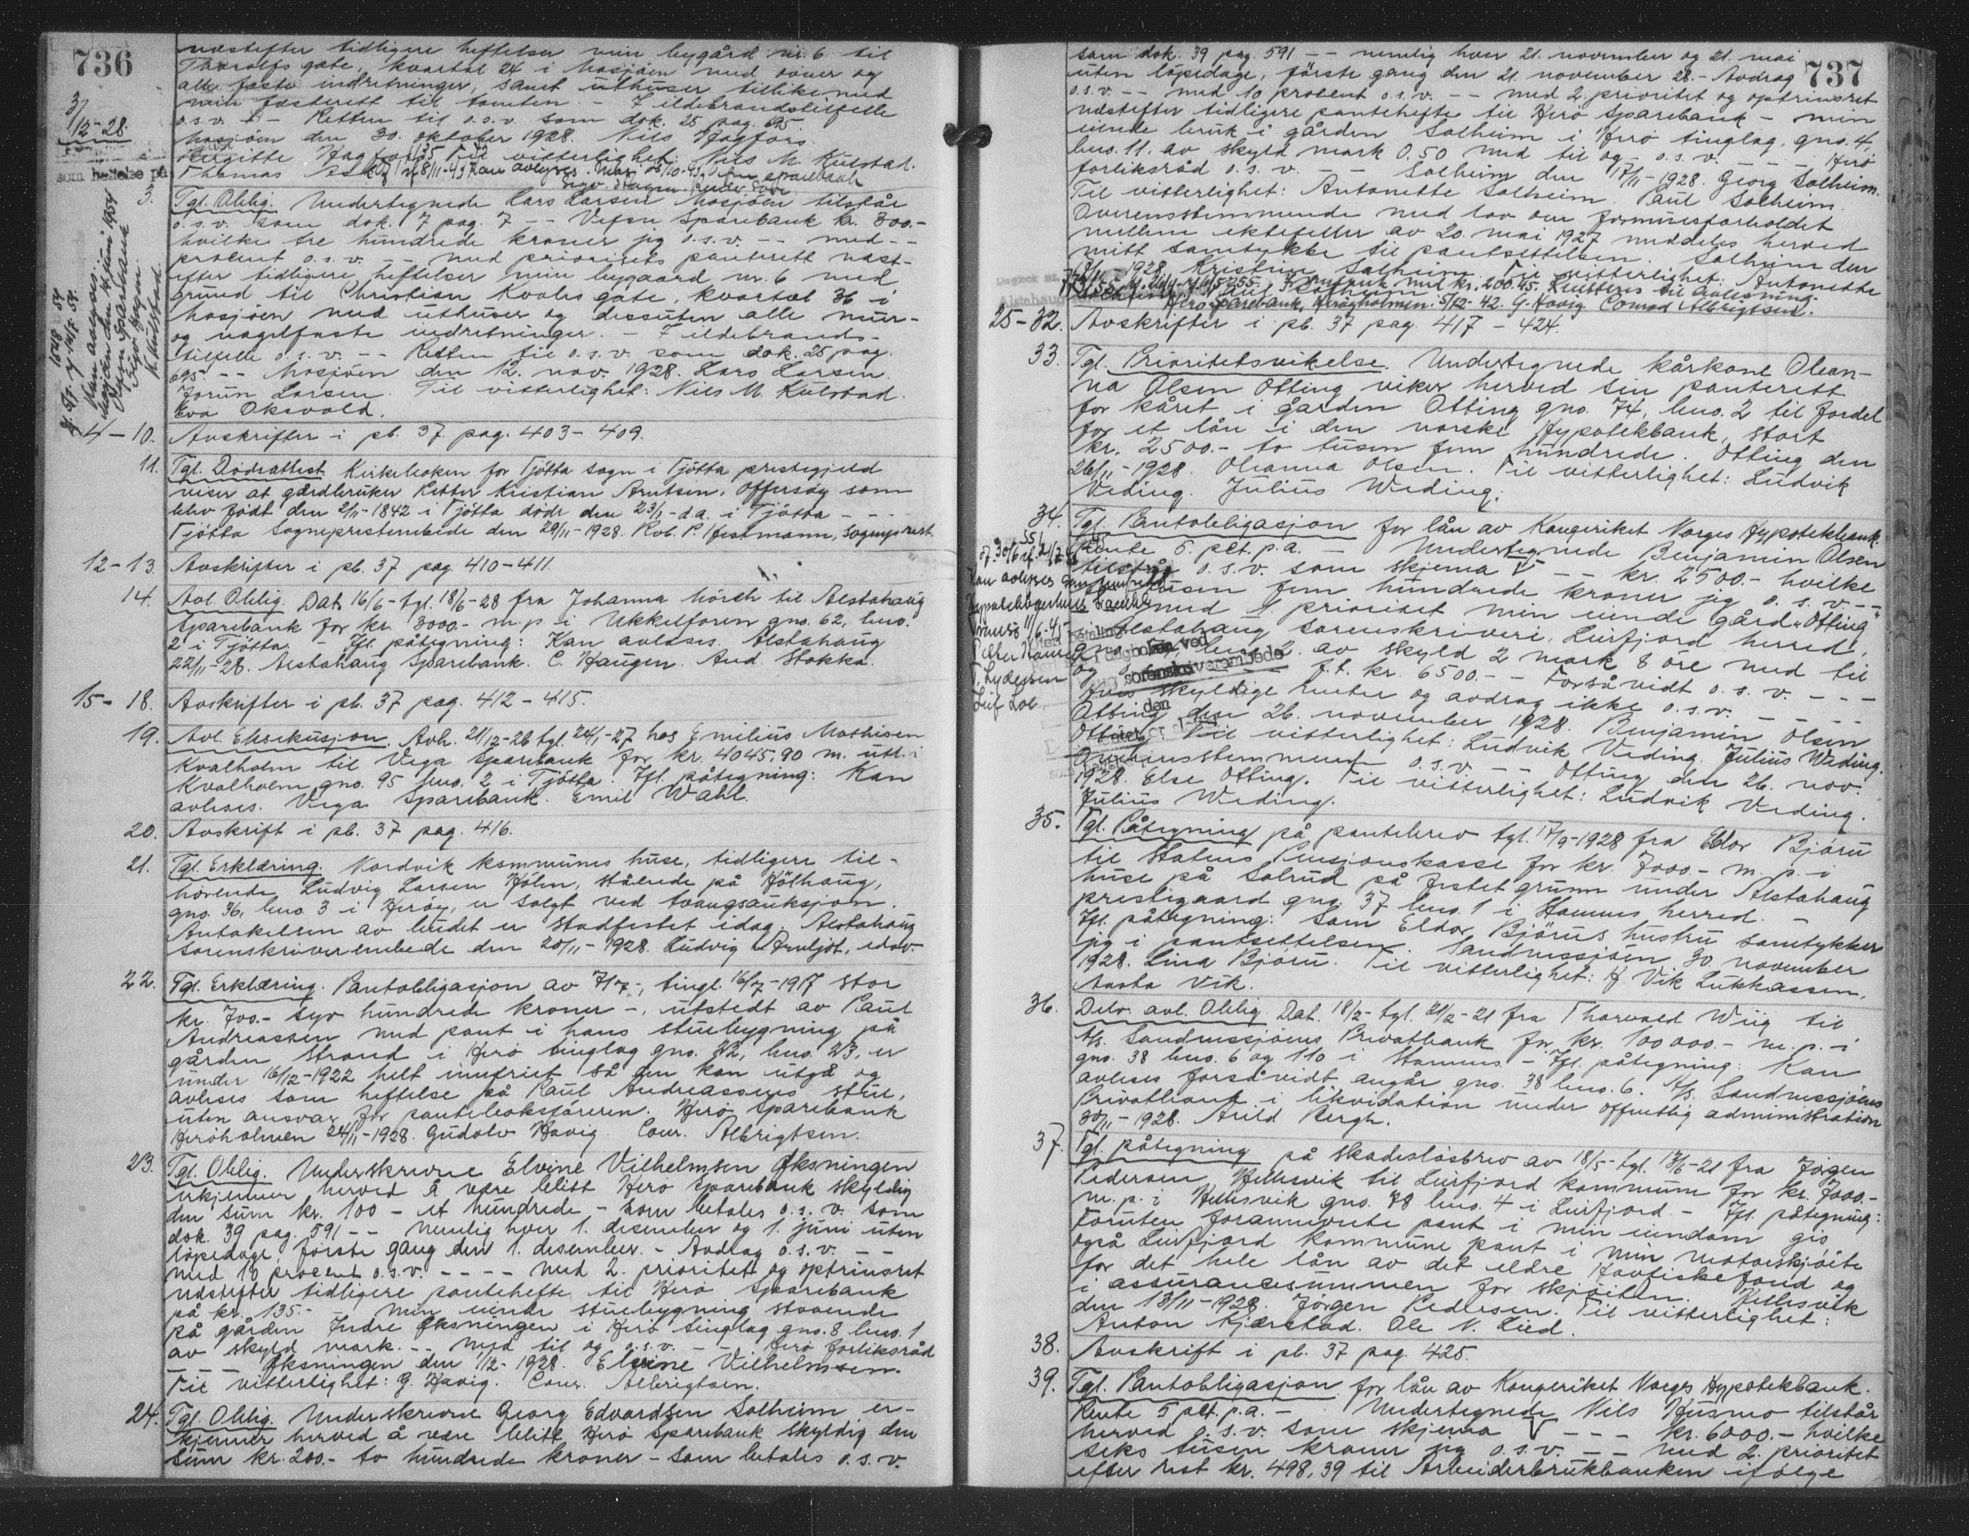 736
næstefter tidligere heftelser min bygård nr. 6 til
Thorolfs gate, kvartal 24 i Mosjöen med ovner og
alle faste indretninger, samt uthuser tillikemed
min festerett til tomten - I ildebrandstilfelle
o.s.v. - - Retten til o.s.v. som dok. 25 pag. 695
Mosjöen den 30. oktober 1928. Nils Hagfors.
Birgitte Hagfors. Til vitterlighet: Nils M. Kulstad.
Thomas
3/12-28.
som heftelse på
3. Tgl. Oblig. Undertegnede Lars Larsen Mosjöen tilstår
o.s.v. som dok. 7 pag. 7 - - Vefsn Sparebank kr. 300.-
hvilke tre hundrede kroner jeg o.s.v. - - med - -
procent o.s.v. - - med prioritets panterett næst-
efter tidligere heftelser min bygaard nr. 6 med
grund til Christian Qvales gate, kvartal 36 i
Mosjöen med uthuser og dessuten alle mur-
og nagelfaste indretninger. - I ildebrands-
tilfelle o.s.v. - - Retten til o.s.v. som dok. 25 pag.
695 - - Mosjöen den 12. nov. 1928. Lars Larsen.
Jorun Larsen. Til vitterlighet: Nils M. Kulstad.
Eva Oksvold.
4-10. Avskrifter i pb. 37 pag. 403-409.
11. Tgl. Dødsattest Kirkeboken for Tjötta sogn i Tjötta prestegjeld
viser at gårdbruker Petter Kristian Arntsen, Offersöy som
blev født den 2/11-1842 i Tjötta døde den 23/1-d.a. i Tjötta - - -
Tjötta Sogneprestembede den 29/11-1928. Rob. P. Hestmann, Sogneprest.
12-13. Avskrifter i pb. 37 pag 410-411.
14. Avl. Oblig. Dat. 16/6-tgl. 18/6-28 fra Johanna Mörch til Alstahaug
Sparebank for kr. 3000.- m.p. i Ukkelforen gno. 62, bno.
2 i Tjötta - Ifl. påtegning: Kan avleses. Alstahaug
22/11-28. Alstahaug Sparebank. C. Haugen. And. Stokka.
15-18. Avskrifter i pb. 37 pag. 412-415.
19. Avl. Eksekusjon. Avh. 21/12-26 tgl. 24/1-27 hos Emilius Mathisen
Kvalholm til Vega Sparebank for kr. 4045.90 m. utl. i
Kvalholm gno. 95 bno. 2 i Tjötta. Ifl. påtegning: Kan
avleses. Vega Sparebank. Emil Wahl.
20. Avskrift i pb. 37 pag. 416.
21. Tgl. Erklæring. Nordvik kommunes huse, tidligere til-
hørende Ludvig Larsen Hölen, stående på Hölhaug,
gno. 36, bno. 3 i Herøy, er solgt ved tvangsauksjon.
Antakelsen av budet er stadfestet idag. Alstahaug
sorenskriverembede den 20/11-1928. Ludvig Arnljot, edsv.
22. Tgl. Erklæring. Pantobligasjon av 7/7-, tingl. 16/7-1917 stor
kr. 700.- syv hundrede kroner -, utstedt av Paul
Andreassen med pant i hans stuebygning på
gården Strand i Herø tinglag gno. 32, bno. 23, er
under 16/12-1922 helt innfriet så den kan utgå og
avleses som heftelse på Paul Andreassens stue,
uten ansvar for panteboksføreren. Herö Sparebank
Heröholmen 24/11-1928. Gudolv Havig. Conr. Albrigtsen.
23. Tgl. Oblig. Underskrevne Elvine Vilhelmsen Öksningen
erkjenner herved å være blitt Herö Sparebank skyldig
den sum kr. 100 - et hundrede - som betales o.s.v. som
dok. 39 pag. 591 - - nemlig hver 1. desember og 1. juni uten
löpedage, første gang den 1. desember. - Avdrag o.s.v. - -
med 10 procent o.s.v. - - - - med 2. prioritet og optrinsret
næstefter tidligere pantehefte til Herö Sparebank
på kr. 135.- - min eiende stuebygning staaende
på gården Indre Öksningen i Herö tinglag gno. 8 bno. 1
av skyld mark. - - med til og o.s.v. - - Herö forliksråd
- - Öksningen den 1/12-1928. Elvine Vilhelmsen.
Til vitterlighet: G. Havig. Conr. Albrigtsen.
24. Tgl. Oblig. Underskrevne Georg Edvardsen Solheim er-
kjenner herved å være blitt Herö Sparebank skyldig den
sum kr. 200.- to hundrede kroner - som betales o.s.v.
737
som dok. 39 pag. 591 - - nemlig hver 21. november og 21. mai
uten löpedage, første gang den 21. november 28. - Avdrag
o.s.v. - - med 10 procent o.s.v. - - med 2. prioritet og optrinsret
næstefter tidligere pantehefte til Herö Sparebank - min
eiende bruk i gården Solheim i Herö tinglag, gno. 4,
bno. 11. av skyld mark 0.50 med til og - o.s.v. - - - Herö
forliksråd o.s.v. - - Solheim den 15/11-1928. Georg Solheim.
Til vitterlighet: Antonette Solheim. Paul Solheim.
Overensstemmende med lov om formuesforholdet
mellem ektefeller av 20. mai 1927 meddeles herved
mitt samtykke til pantsettelsen. Solheim den
1928. Kristine Solheim. Til vitterlighet: Antonette
Herö Sparebank, Herøholmen 5/12-42. G. Havig. Conrad Albrigtsen.
25-32. Avskrifter i pb. 37 pag. 417-424.
33. Tgl. Prioritetsvikelse. Undertegnede kårkone Olean-
na Olsen Otting viker herved sin panterett
for kåret i gården Otting gno. 74, bno. 2 til fordel
for et lån i den norske Hypotekbank, stort
kr. 2500.- to tusen fem hundrede. Otting den
26/11-1928. Oleanna Olsen. Til vitterlighet: Ludvik
Veding. Julius Weding.
34. Tgl. Pantobligasjon for lån av Kongeriket Norges Hypotekbank.
Rente 5 pct. p.a. - Undertegnede Benjamin Olsen
tilstår o.s.v. som skjema V - - kr. 2500.- hvilke
tusen fem hundrede kroner jeg o.s.v. - -
med 1 prioritet min eiende gård "Otting"
i Alstahaug sorenskriveri, Leirfjord herred,
gno. bno. 2. av skyld 2 mark 8 öre med til
f.t. kr. 6500.- - Forsåvidt o.s.v. - -
hvis skyldige renter og avdrag ikke o.s.v. - -
Otting den 26. november 1928. Benjamin Olsen
Otting. Til vitterlighet: Ludvik Veding. Julius Weding.
Overensstemmende o.s.v. - - Otting den 26. nov.
1928. Else Otting. Til vitterlighet: Ludvik Veding.
Julius Weding.
35. Tgl. Påtegning på pantebrev tgl. 17/9-1928 fra Eldor Björu
til Statens Pensjonskasse for kr. 7000.- m. p. i
huse på Solrud på festet grunn under Alstahaug
prestegaard gno. 37 bno. 1 i Stamnes herred. -
Ifl. påtegning: Som Eldor Björus hustru samtykker
jeg i pantsettelsen. Sandnessjöen 30 november
1928. Lina Björu. Til vitterlighet: H Vik Lukkassen.
Aasta Vik.
36. Delv. avl. Oblig. Dat. 18/2-tgl. 21/2-21 fra Thorvald Wiig til
A/s. Sandnessjöens Privatbank for kr. 100000.- m. p. i
gno. 38 bno. 6 og 110 i Stamnes - Ifl. påtegning: Kan
avleses forsåvidt angår gno. 38 bno. 6. A/s. Sandnessjöens
Privatbank i likvidation under offentlig administration
30/11-1928. Arild Bergh.
37. Tgl. påtegning på skadeslösbrev av 18/5-tgl. 13/6-21 fra Jörgen
Pedersen Hellesvik til Leirfjord kommune for kr. 7000.-
m. p. i Hellesvik gno. 78 bno. 4 i Leirfjord. - Ifl. påtegning:
Foruten forannevnte pant i min eiendom gis
også Leirfjord kommune pant i min motorskjöite
for det hele lån av det eldre Havfiskefond og
i assurancesummen for skjöiten. Hellesvik
den 13/11-1928. Jörgen Pedersen. Til vitterlighet:
Anton Kjærstad. Ole N. Lied.
38. Avskrift i pb. 37 pag. 425.
39. Tgl. Pantobligasjon for lån av Kongeriket Norges Hypotekbank.
Rente 5 pct. p.a. - Undertegnede Nils Husmo tilstår
herved o.s.v. som skjema V - - - kr. 6000.- hvilke
seks tusen kroner jeg o.s.v. - - med 2. prioritet
efter rest kr. 498,39 til Arbeiderbrukbanken ifölge